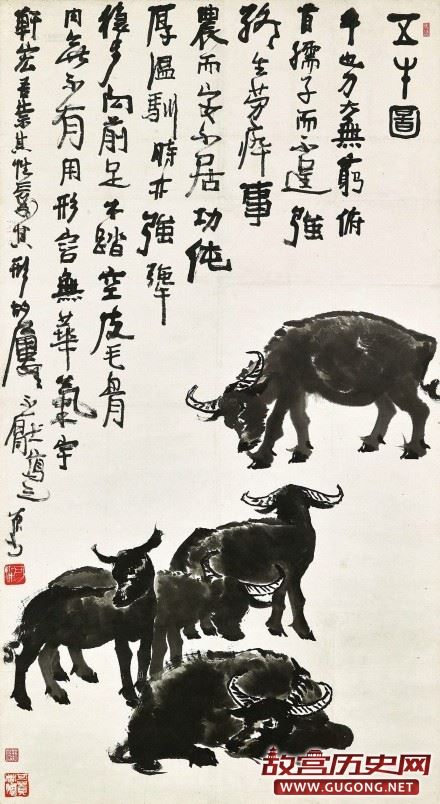 五牛圖
牛也力大無窮俯
首孺子而不逞強
終生勞瘁事
農而安不居功純
厚溫馴時亦強犟
穩步向前足不踏空皮毛骨
肉無不有用形容無華氣宇
軒宏吾崇其性愛其形故屢屢不厭寫之 可染
故宫历史网
WWW.GUGONG.NET